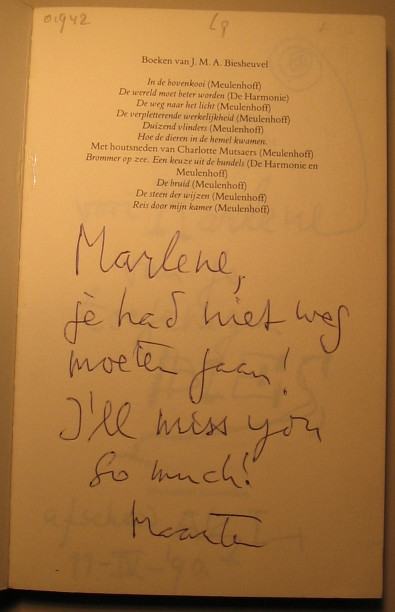 0.942
Boeken van J. M. A. Biesheuvel
In de bovenkooi (Meulenhoff)
De wereld moet beter worden (De Harmonie)
De weg naar het licht (Meulenhoff)
De verpletterende werkelijkheid (Meulenhoff)
Duizend vlinders (Meulenhoff)
Hoe de dieren in de hemel kwamen.
Met houtsneden van Charlotte Mutsaers (Meulenhoff)
Brommer op zee. Een keuze uit de bundels (De Harmonie en
Meulenhoff)
De bruid (Meulenhoff)
De steen der wijzen (Meulenhoff)
Reis door mijn kamer (Meulenhoff)
Marlene,
je had niet weg
moeten gaan!
I'll miss you
so much!
Maarten